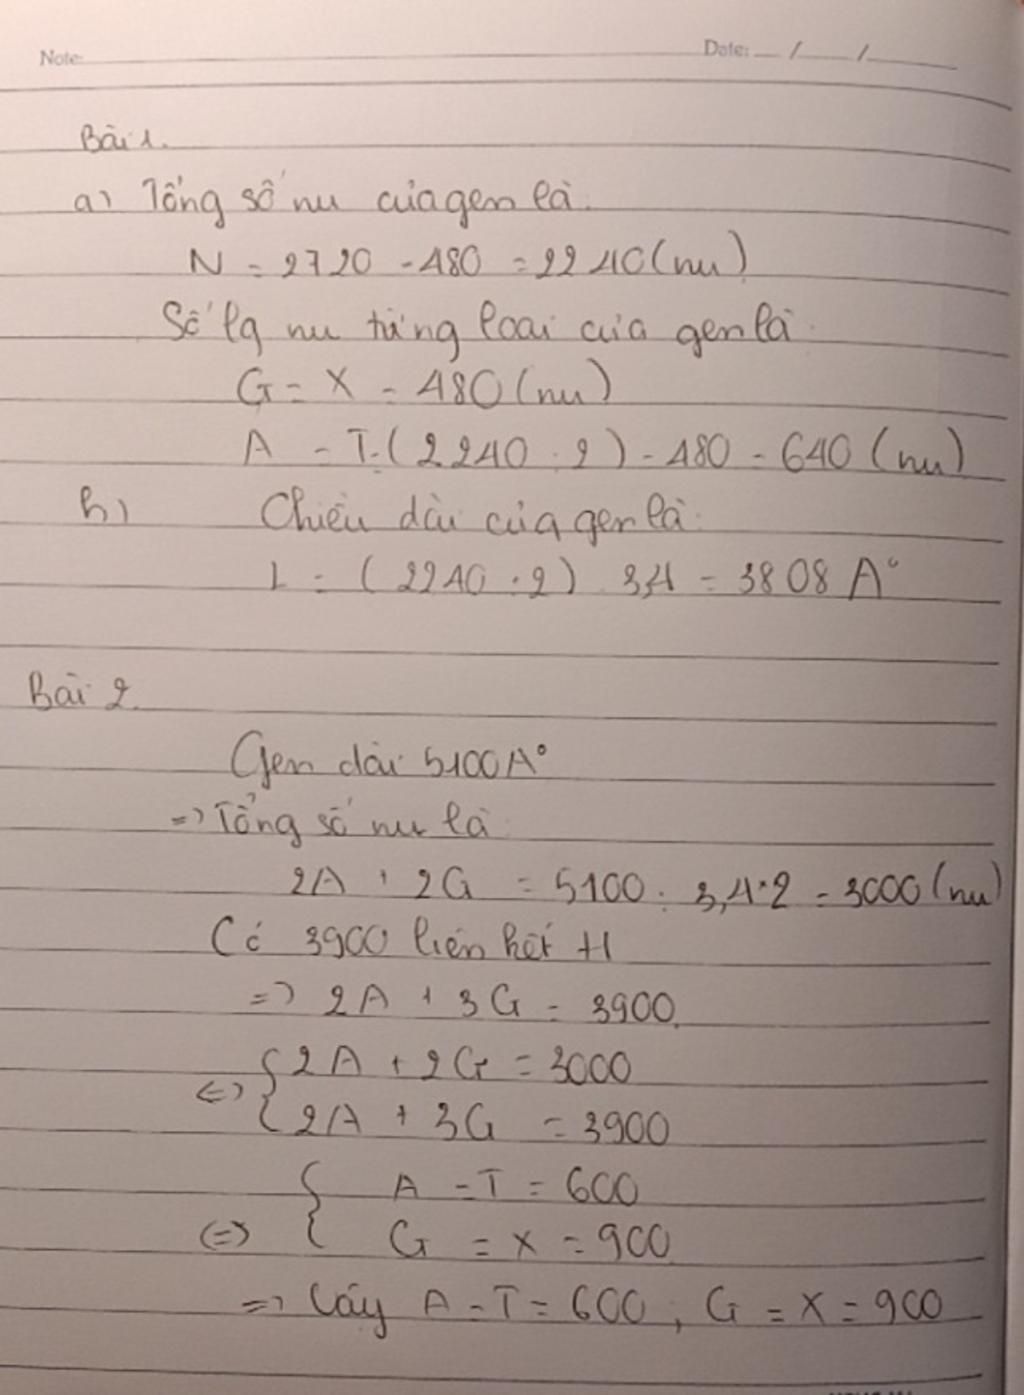 Note:
Date: / /
Bài 1.
a) Tổng số nu của gen là:
N = 2720 - 480 = 2240 (nu)
Số lg nu từng loại của gen là:
G = X = 480 (nu)
A = T = (2240 : 2) - 480 = 640 (nu)
b) Chiều dài của gen là:
L = (2240 : 2) . 3,4 = 3808 A°
Bài 2.
Gen dài 5100A°
=> Tổng số nu là
2A + 2G = 5100 : 3,4 . 2 = 3000 (nu)
Có 3900 liên kết H
=> 2A + 3G = 3900
<=> { 2A + 2G = 3000
2A + 3G = 3900
<=> { A = T = 600
G = X = 900
=> Vậy A = T = 600 ; G = X = 900